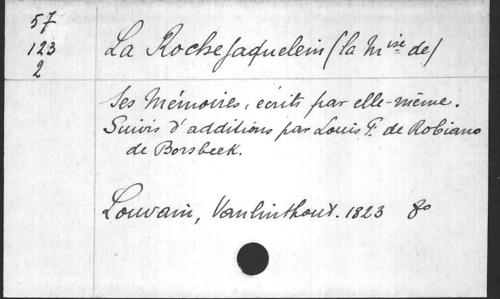 57
123
2
La Rochejaquelein (la Mise de)
Ses Mémoires, écrits par elle-même.
Suivis d'additions par Louis F. de Robiano
de Borsbeek.
Louvain, Vanlinthout. 1823 8o